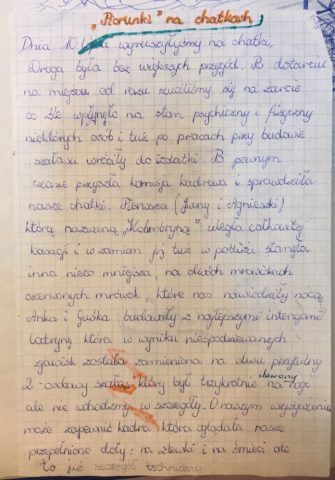 „Piorunki” na chatkach
Dnia 10 wyruszyłyśmy na chatki,
Droga była bez większych przygód. Po dotarciu
na miejsce od razu rzuciliśmy się na żarcie
co źle wpłynęło na stan psychiczny i fizyczny
niektórych osób i tuż po pracach przy budowie
szałasu wróciły do izolatki. W pewnym
czasie przyszła komisja kadrowa i sprawdziła
nasze chatki. Pierwsza (Joany i Agnieszki)
którą nazwano „Kolimbryną” uległa całkowitej
kasacji i w zamian jej tuż w pobliżu stanęła
inna nieco mniejsza, na dwóch mrowiskach
czerwonych mrówek, które nas nawiedzały nocą
Anka i Guśka budowały z najlepszymi intencjami
latrynę która w wyniku niespodziewanych
zjawisk została zamieniona na słynny przytulny
2-osobowy szałas który był trzykrotnie stawiany na nogi
ale nie wchodźmy w szczegóły. O naszym wyżywieniu
może zapewnić kadra która oglądała nasze
przepełnione doły: na zlewki i na śmieci ale
to już szczegół techniczny.